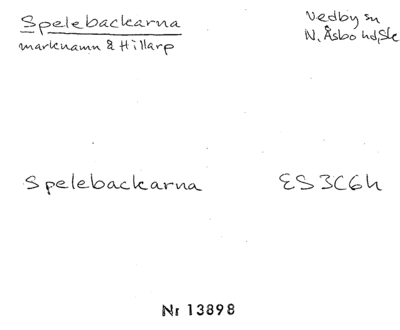 Spelebackarna
marknamn å Hillarp
Vedby sn
N. Åsbo hd, Sk
Spelebackarna
ES 3C6h
Nr 13898